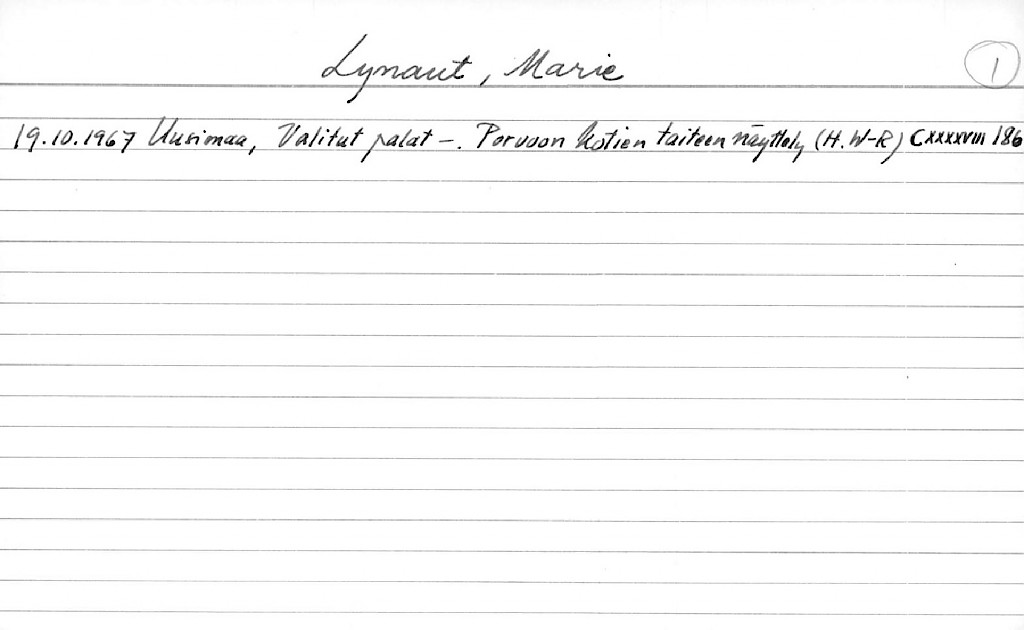 Lynaut, Marie
1
19.10.1967 Uusimaa, Valitut palat -. Porvoon kotien taiteen näyttely (H. W-R) CXXXXVIII 186